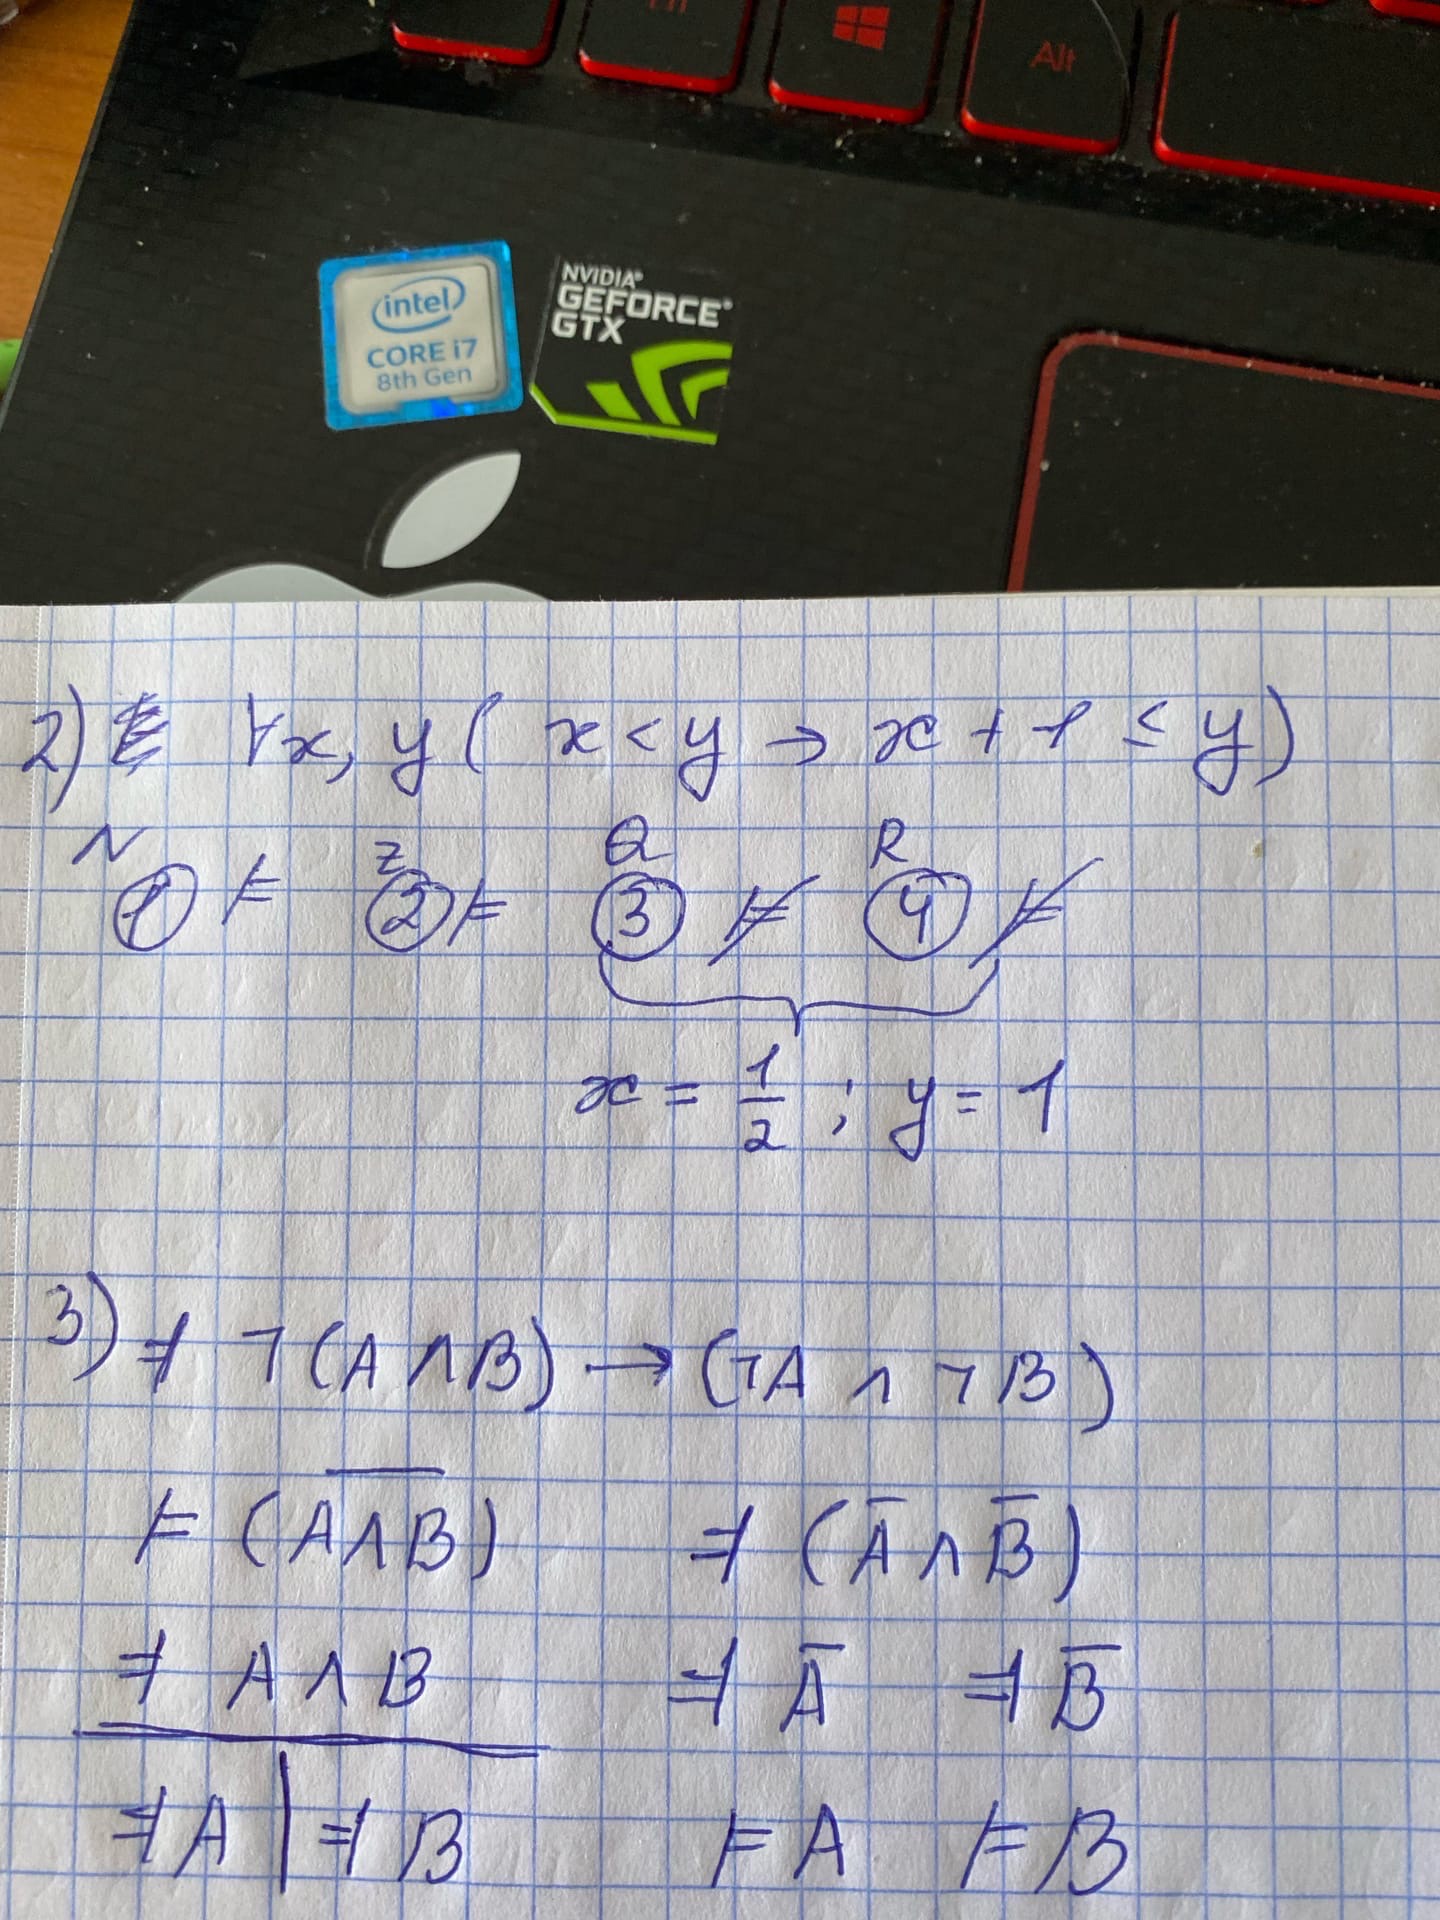 Alt
intel
CORE i7
8th Gen
NVIDIA®
GEFORCE®
GTX
2) ∀x, y ( x < y → x + 1 ≤ y)
N Z Q R
① ⊨ ② ⊨ ③ ⊭ ④ ⊭
x = 1/2 ; y = 1
3) ⫤ ¬(A ∧ B) → (¬A ∧ ¬B)
⊨ (A̅ ∧̅ B̅) ⫤ (A̅ ∧ B̅)
⫤ A ∧ B ⫤ A̅ ⫤ B̅
⫤ A | ⫤ B ⊨ A ⊨ B